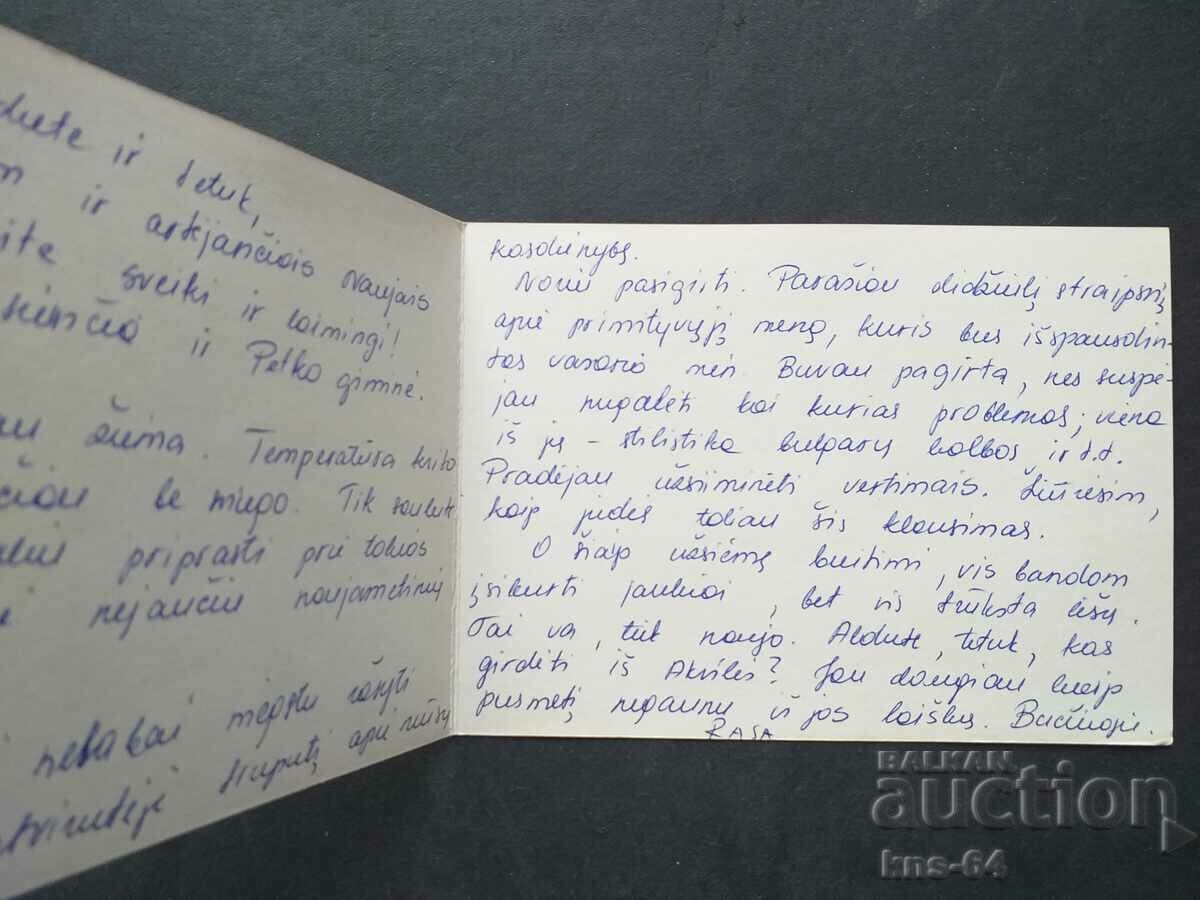 ir tetuk,
ir artėjančiais Naujais
sveiki ir laimingi!
ir Petko giminė.
žiema. Temperatūra krito
be miego. Tik saulutė
priprasti prie tokios
nejaučiu naujametinių
nelabai mėgstu rašyti
truputį apie mūsų
kasdienybę.
Noriu pasigirti. Parašiau didžiulį straipsnį
apie primityvųjį meną, kuris bus išspausdin-
tas vasario mėn. Buvau pagirta, nes suspė-
jau nugalėti kai kurias problemas; viena
iš jų - stilistika bulgarų kalbos ir t.t.
Pradėjau užsiiminėti vertimais. Žiūrėsim,
kaip judės toliau šis klausimas.
O šiaip užsiėmę buitimi, vis bandom
įsikurti jaukiai, bet vis trūksta lėšų.
Tai va, tiek naujo. Aldute, tetuk, kas
girdėti iš Akvilės? Jau daugiau kaip
pusmetį negaunu iš jos laiškų. Bučiuoju.
RASA
BALKAN
auction
kns-64